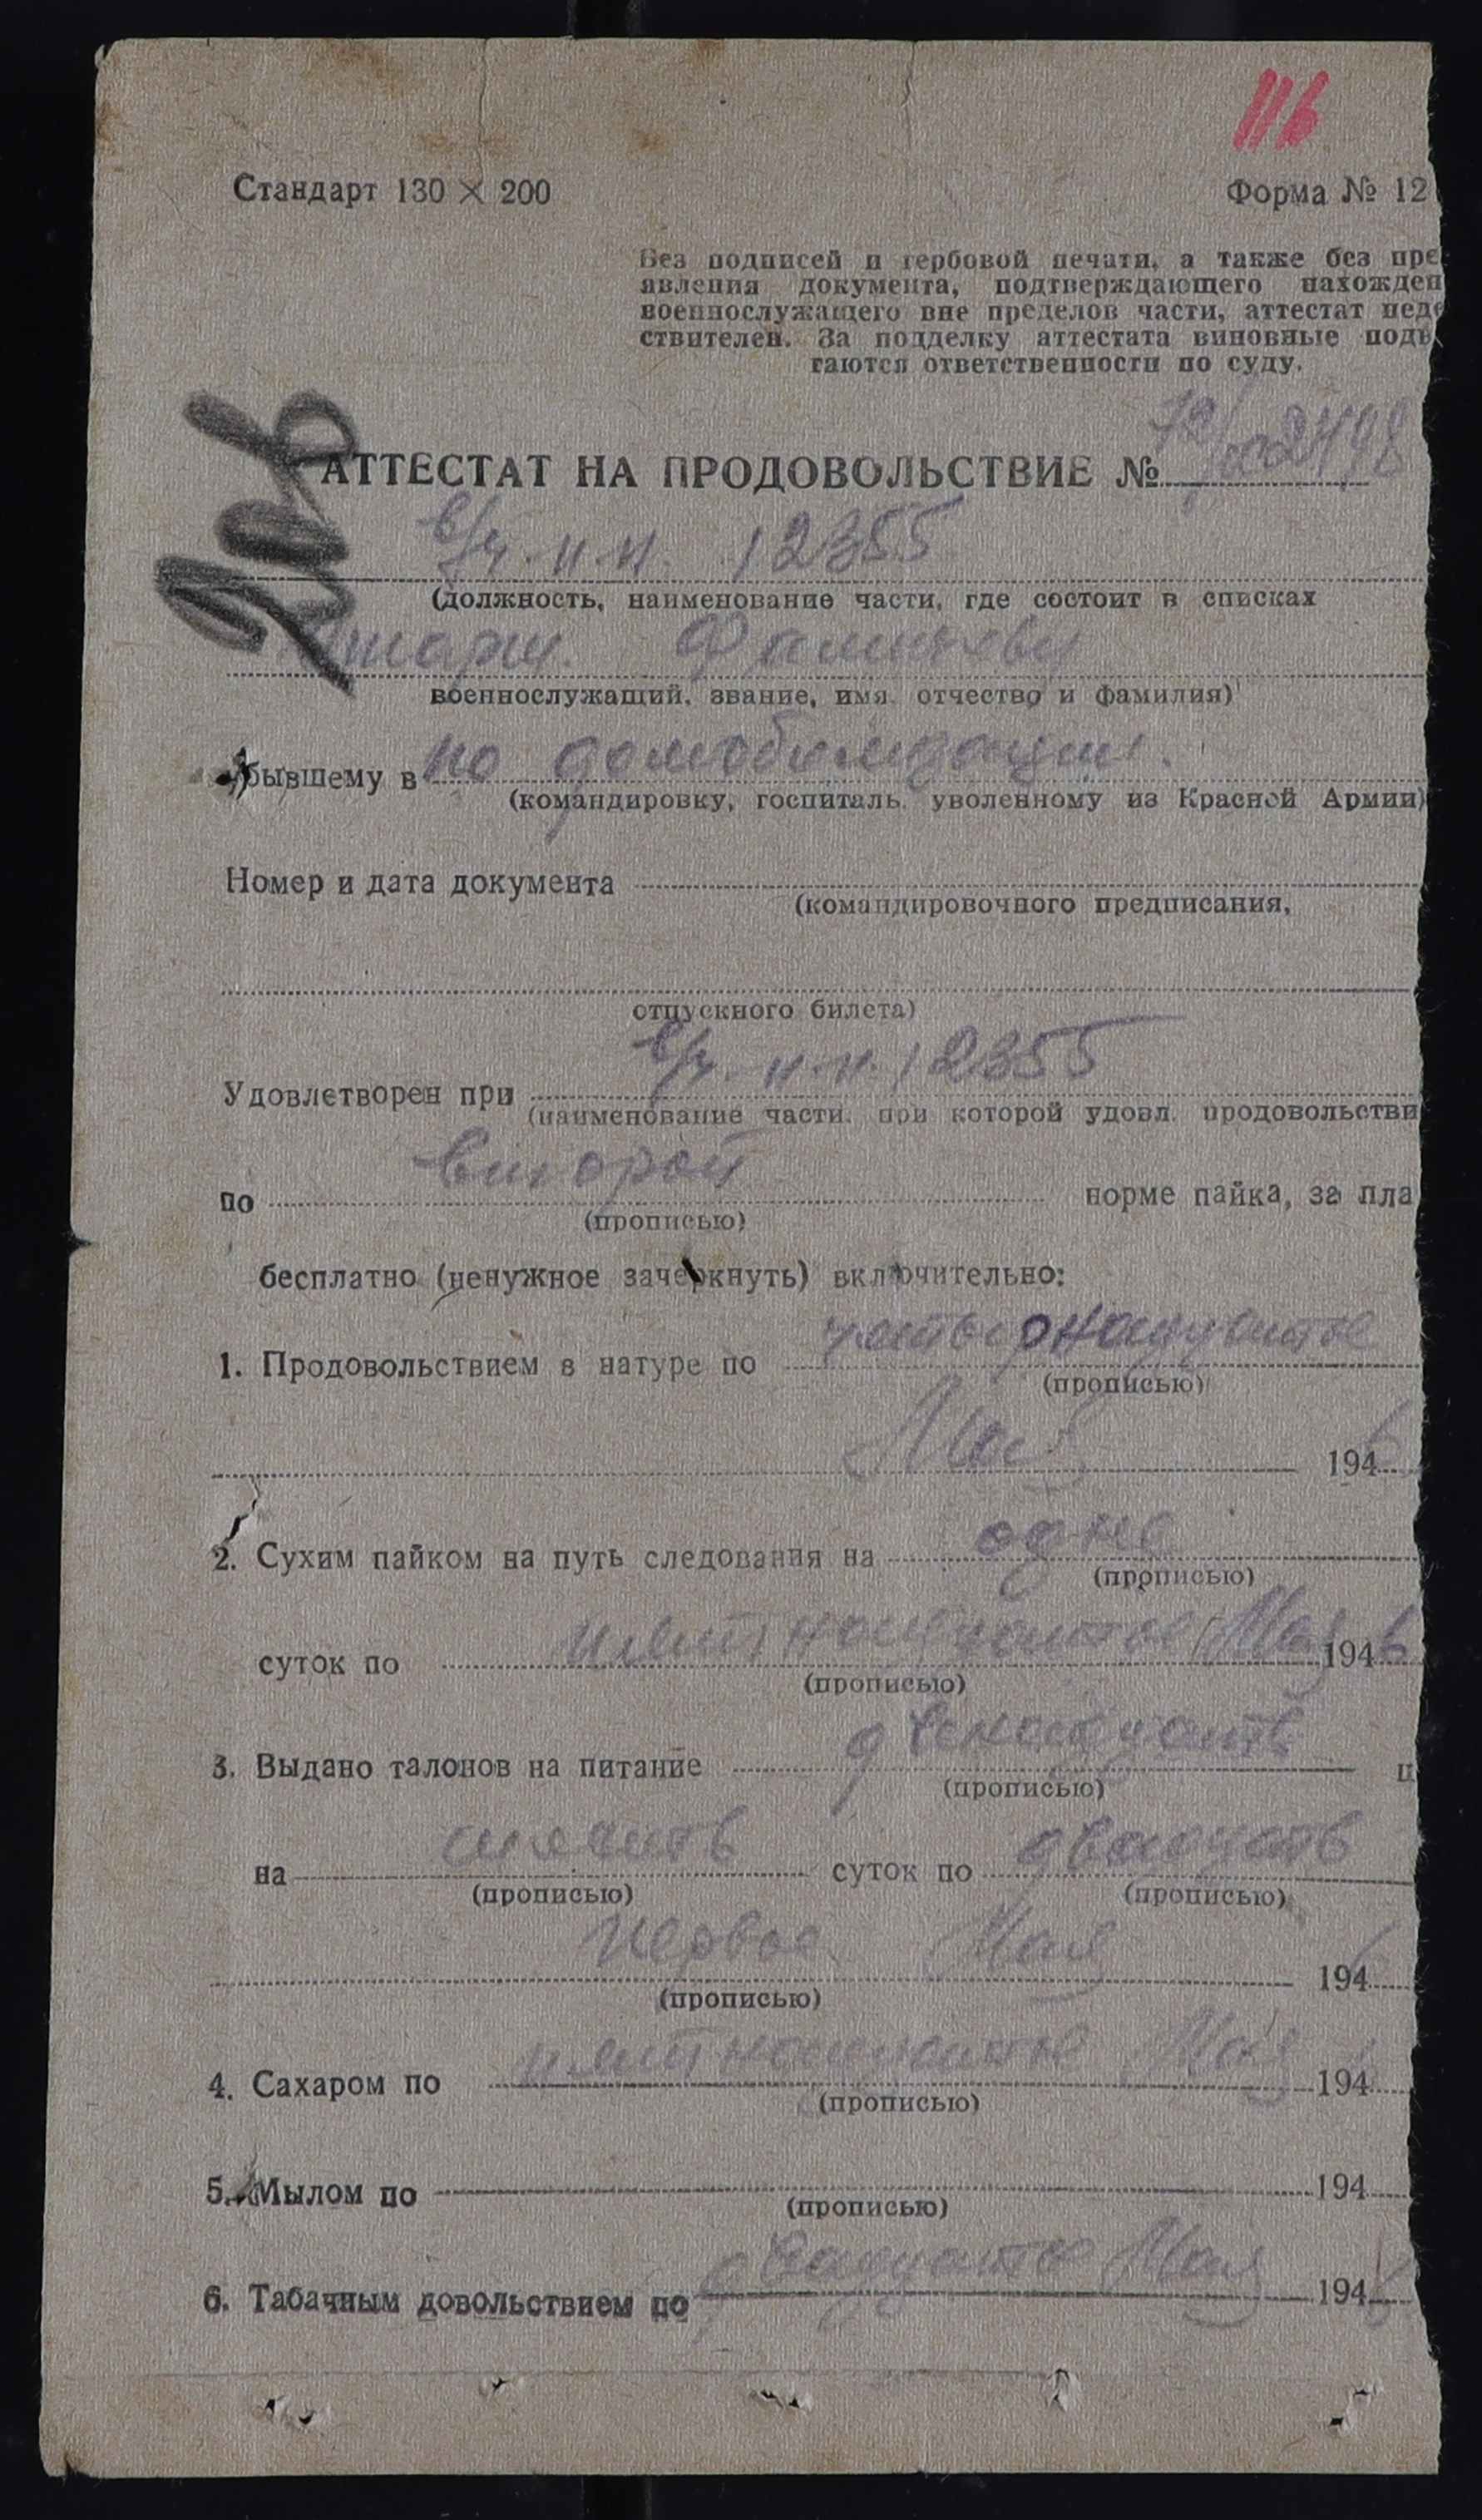 116
Стандарт 130 × 200 Форма № 12
Без подписей и гербовой печати, а также без пре
явления документа, подтверждающего нахожден
военнослужащего вне пределов части, аттестат неде
ствителен. За подделку аттестата виновные подв
гаются ответственности по суду.
АТТЕСТАТ НА ПРОДОВОЛЬСТВИЕ №
в/ч-п.п. 12355
(должность, наименование части, где состоит в списках
Фамичеву
военнослужащий, звание, имя, отчество и фамилия)
Убывшему в по демобилизации.
(командировку, госпиталь, уволенному из Красной Армии)
Номер и дата документа
(командировочного предписания,
отпускного билета)
в/ч-п.п. 12355
Удовлетворен при
(наименование части, при которой удовл. продовольстви
по второй норме пайка, за пла
(прописью)
бесплатно (ненужное зачеркнуть) включительно:
1. Продовольствием в натуре по четырнадцатое
(прописью)
Мая 1946
2. Сухим пайком на путь следования на одне
(прописью)
суток по пятнадцатое Мая 1946
(прописью)
3. Выдано талонов на питание двенадцать ш
(прописью)
на шесть суток по двадцать
(прописью) (прописью)
первое Мая 1946
(прописью)
4. Сахаром по пятнадцатое Мая 194
(прописью)
5. Мылом по 194
(прописью)
6. Табачным довольствием по двадцатое Мая 1946